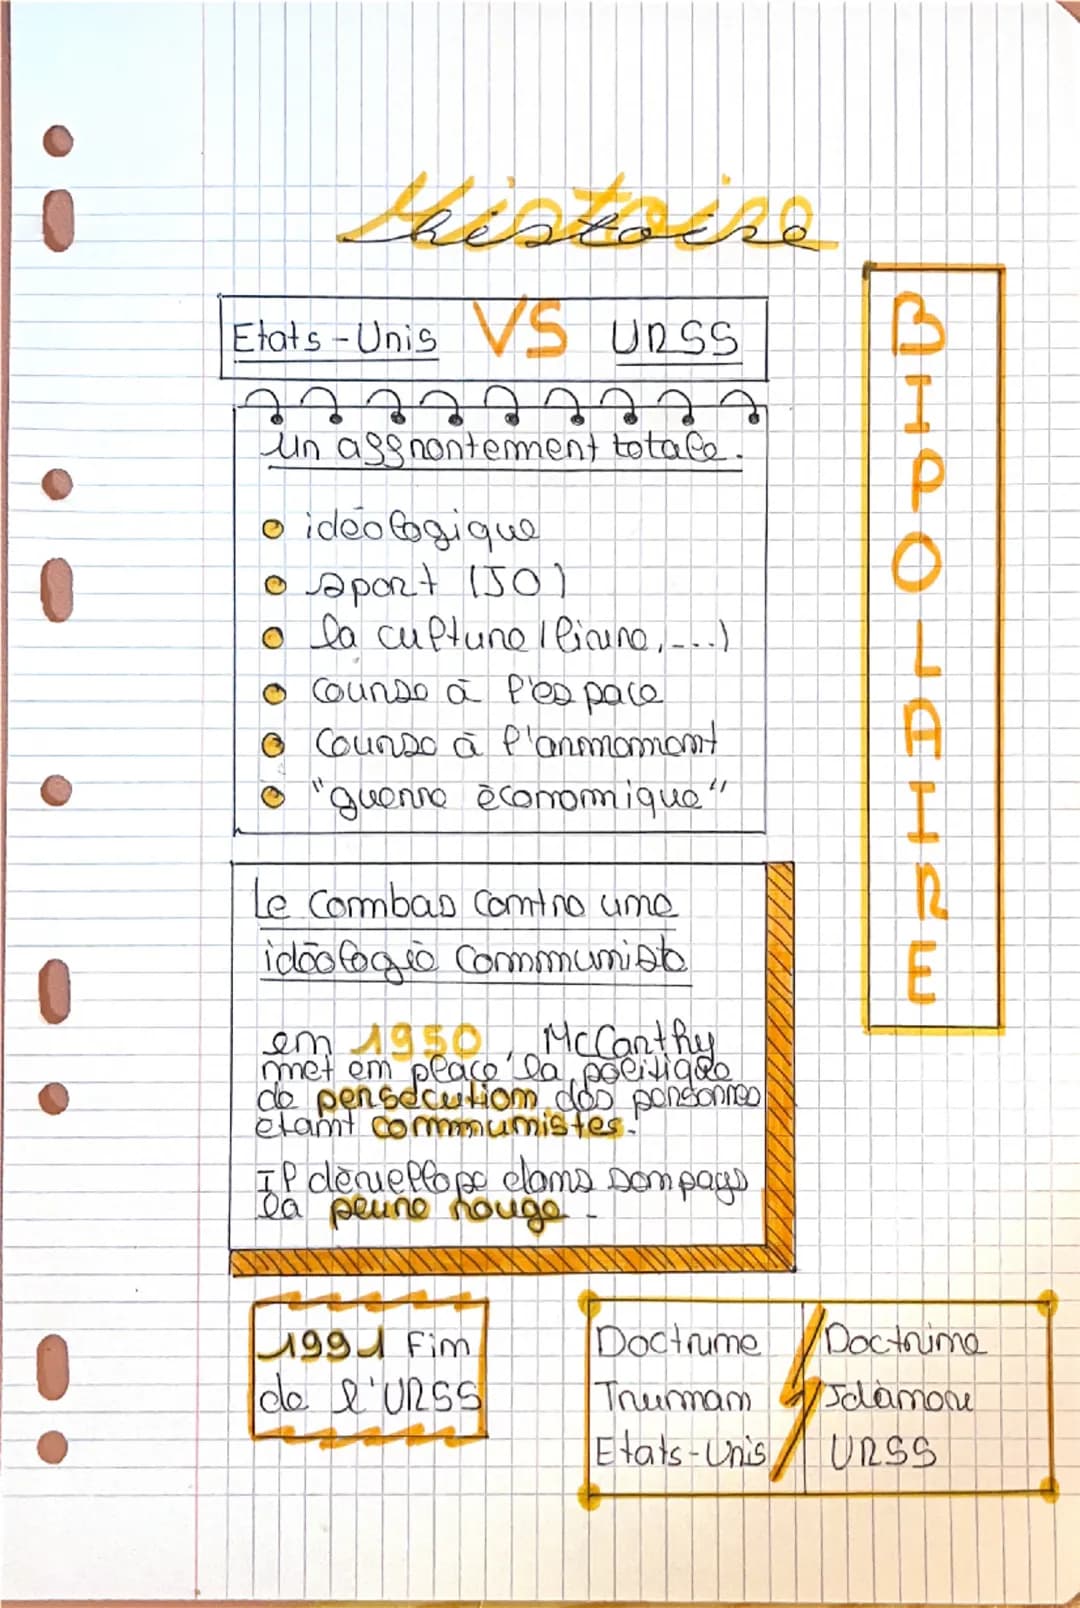 Histoire
Etats-Unis VS URSS
un affrontement totale.
idéologique
sport (JO)
la culture (livre,...)
course à l'espace
course à l'armement
"guerre économique"
Le combas contre une
idéologie communiste
en 1950, McCarthy
met en place la politique
de persécution des personnes
étant communistes.
Il développe dans son pays
la peure rouge.
1991 Fin
de l'URSS
Doctrine
Truman
Etats-Unis
Doctrine
Jdanove
URSS
BIPOLAIRE